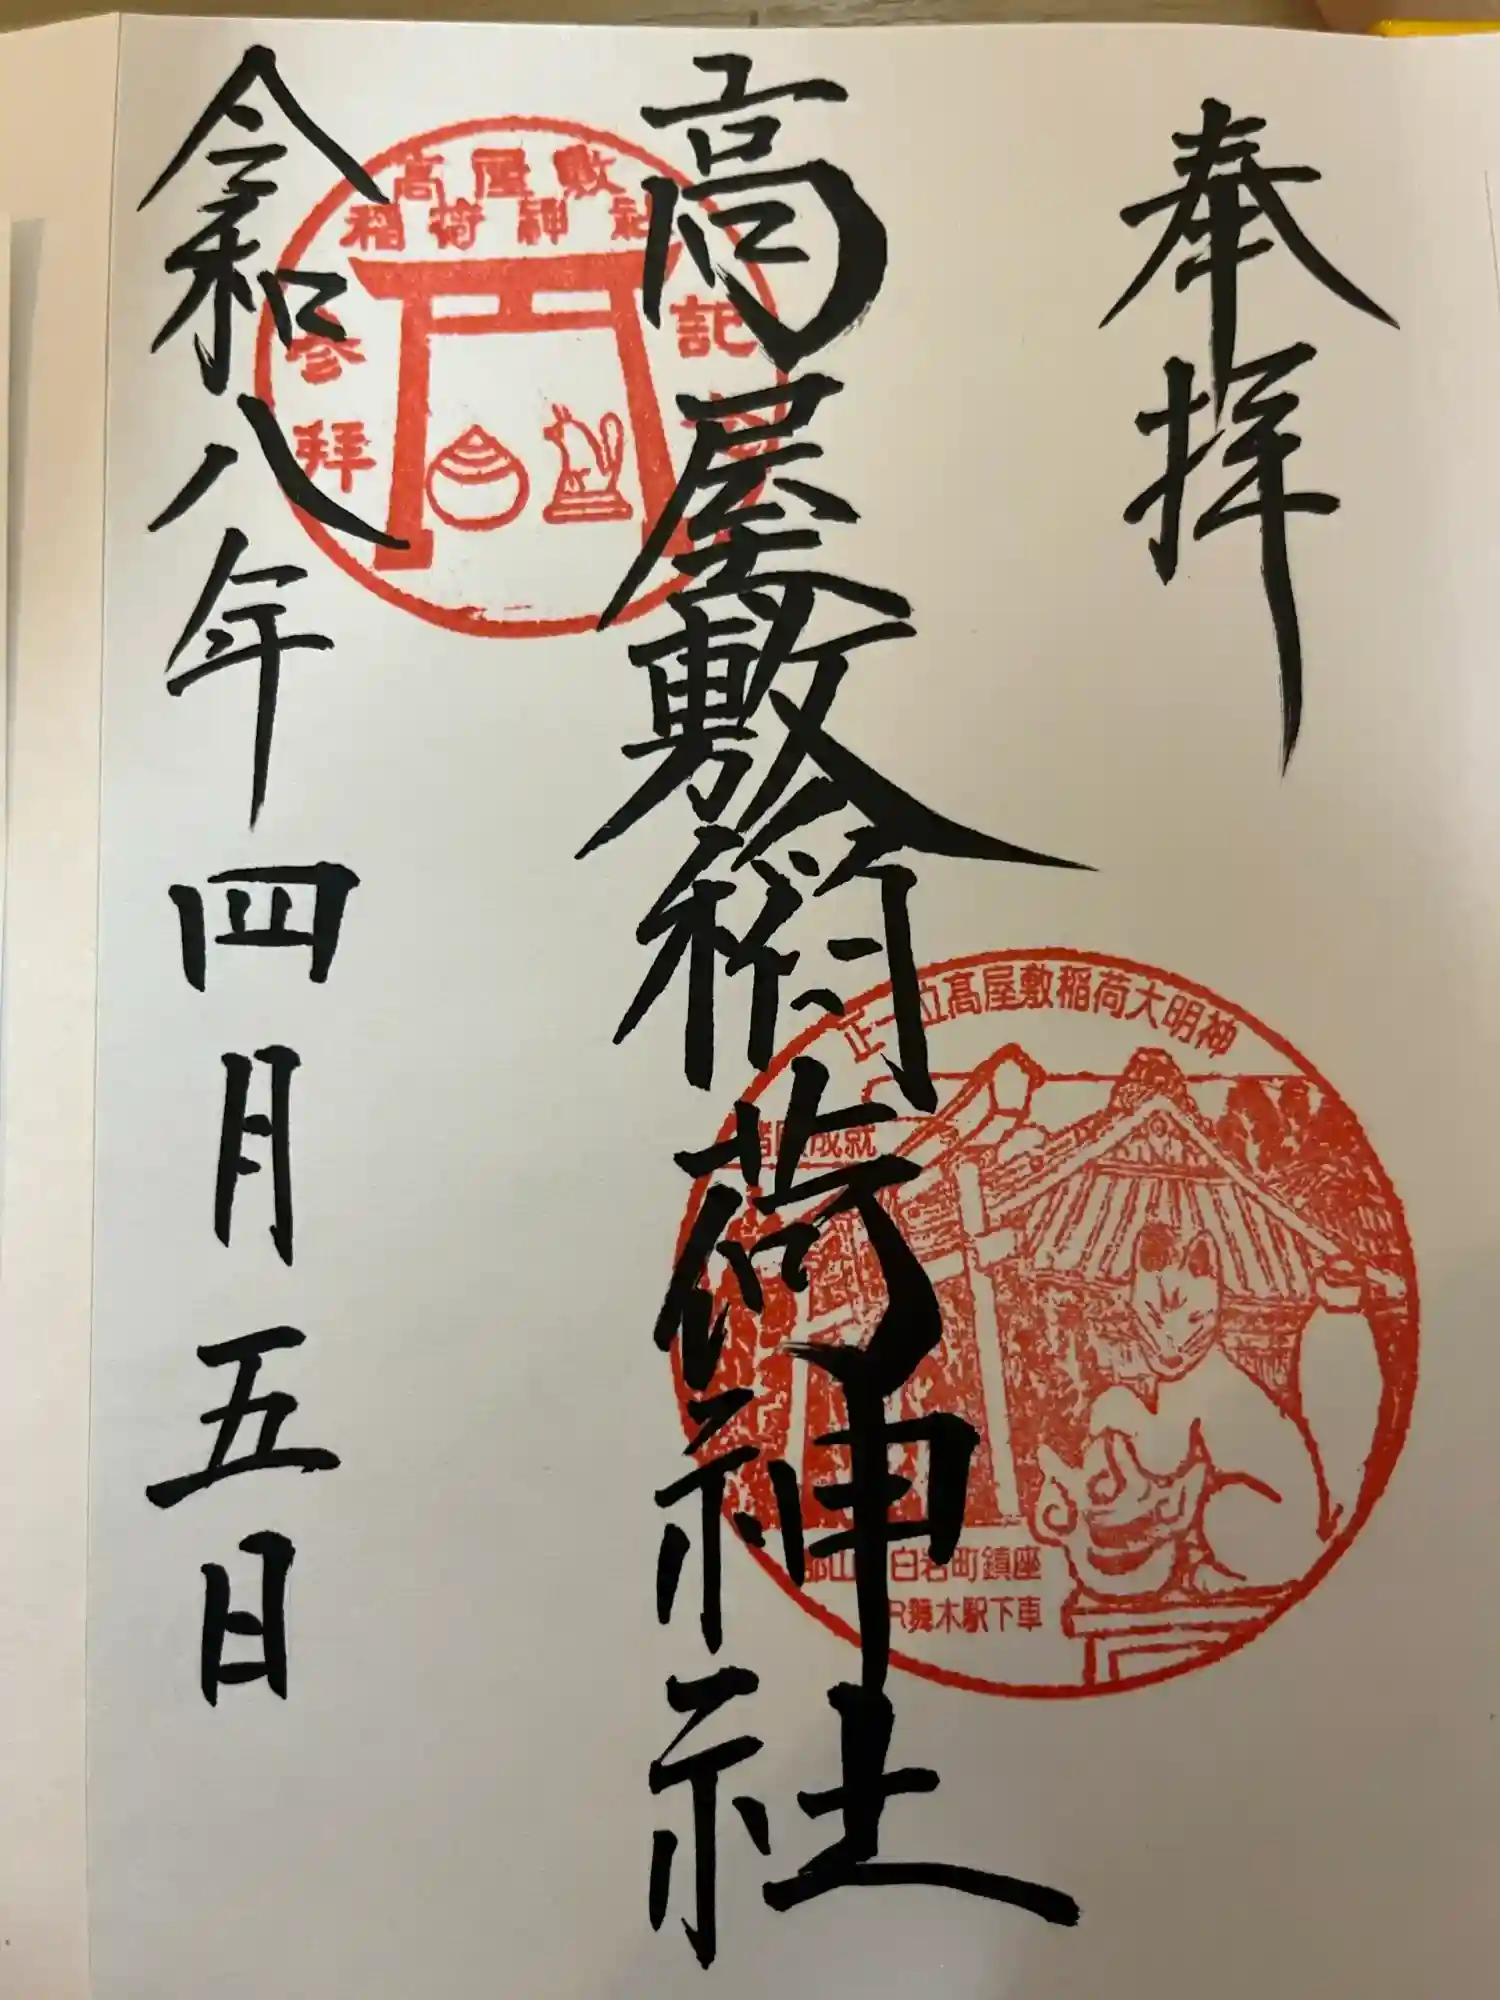 奉拝
高屋敷稲荷神社
令和八年四月五日
高屋敷
稲荷神社
参拝
記
正一位高屋敷稲荷大明神
成就
白岩町鎮座
JR舞木駅下車